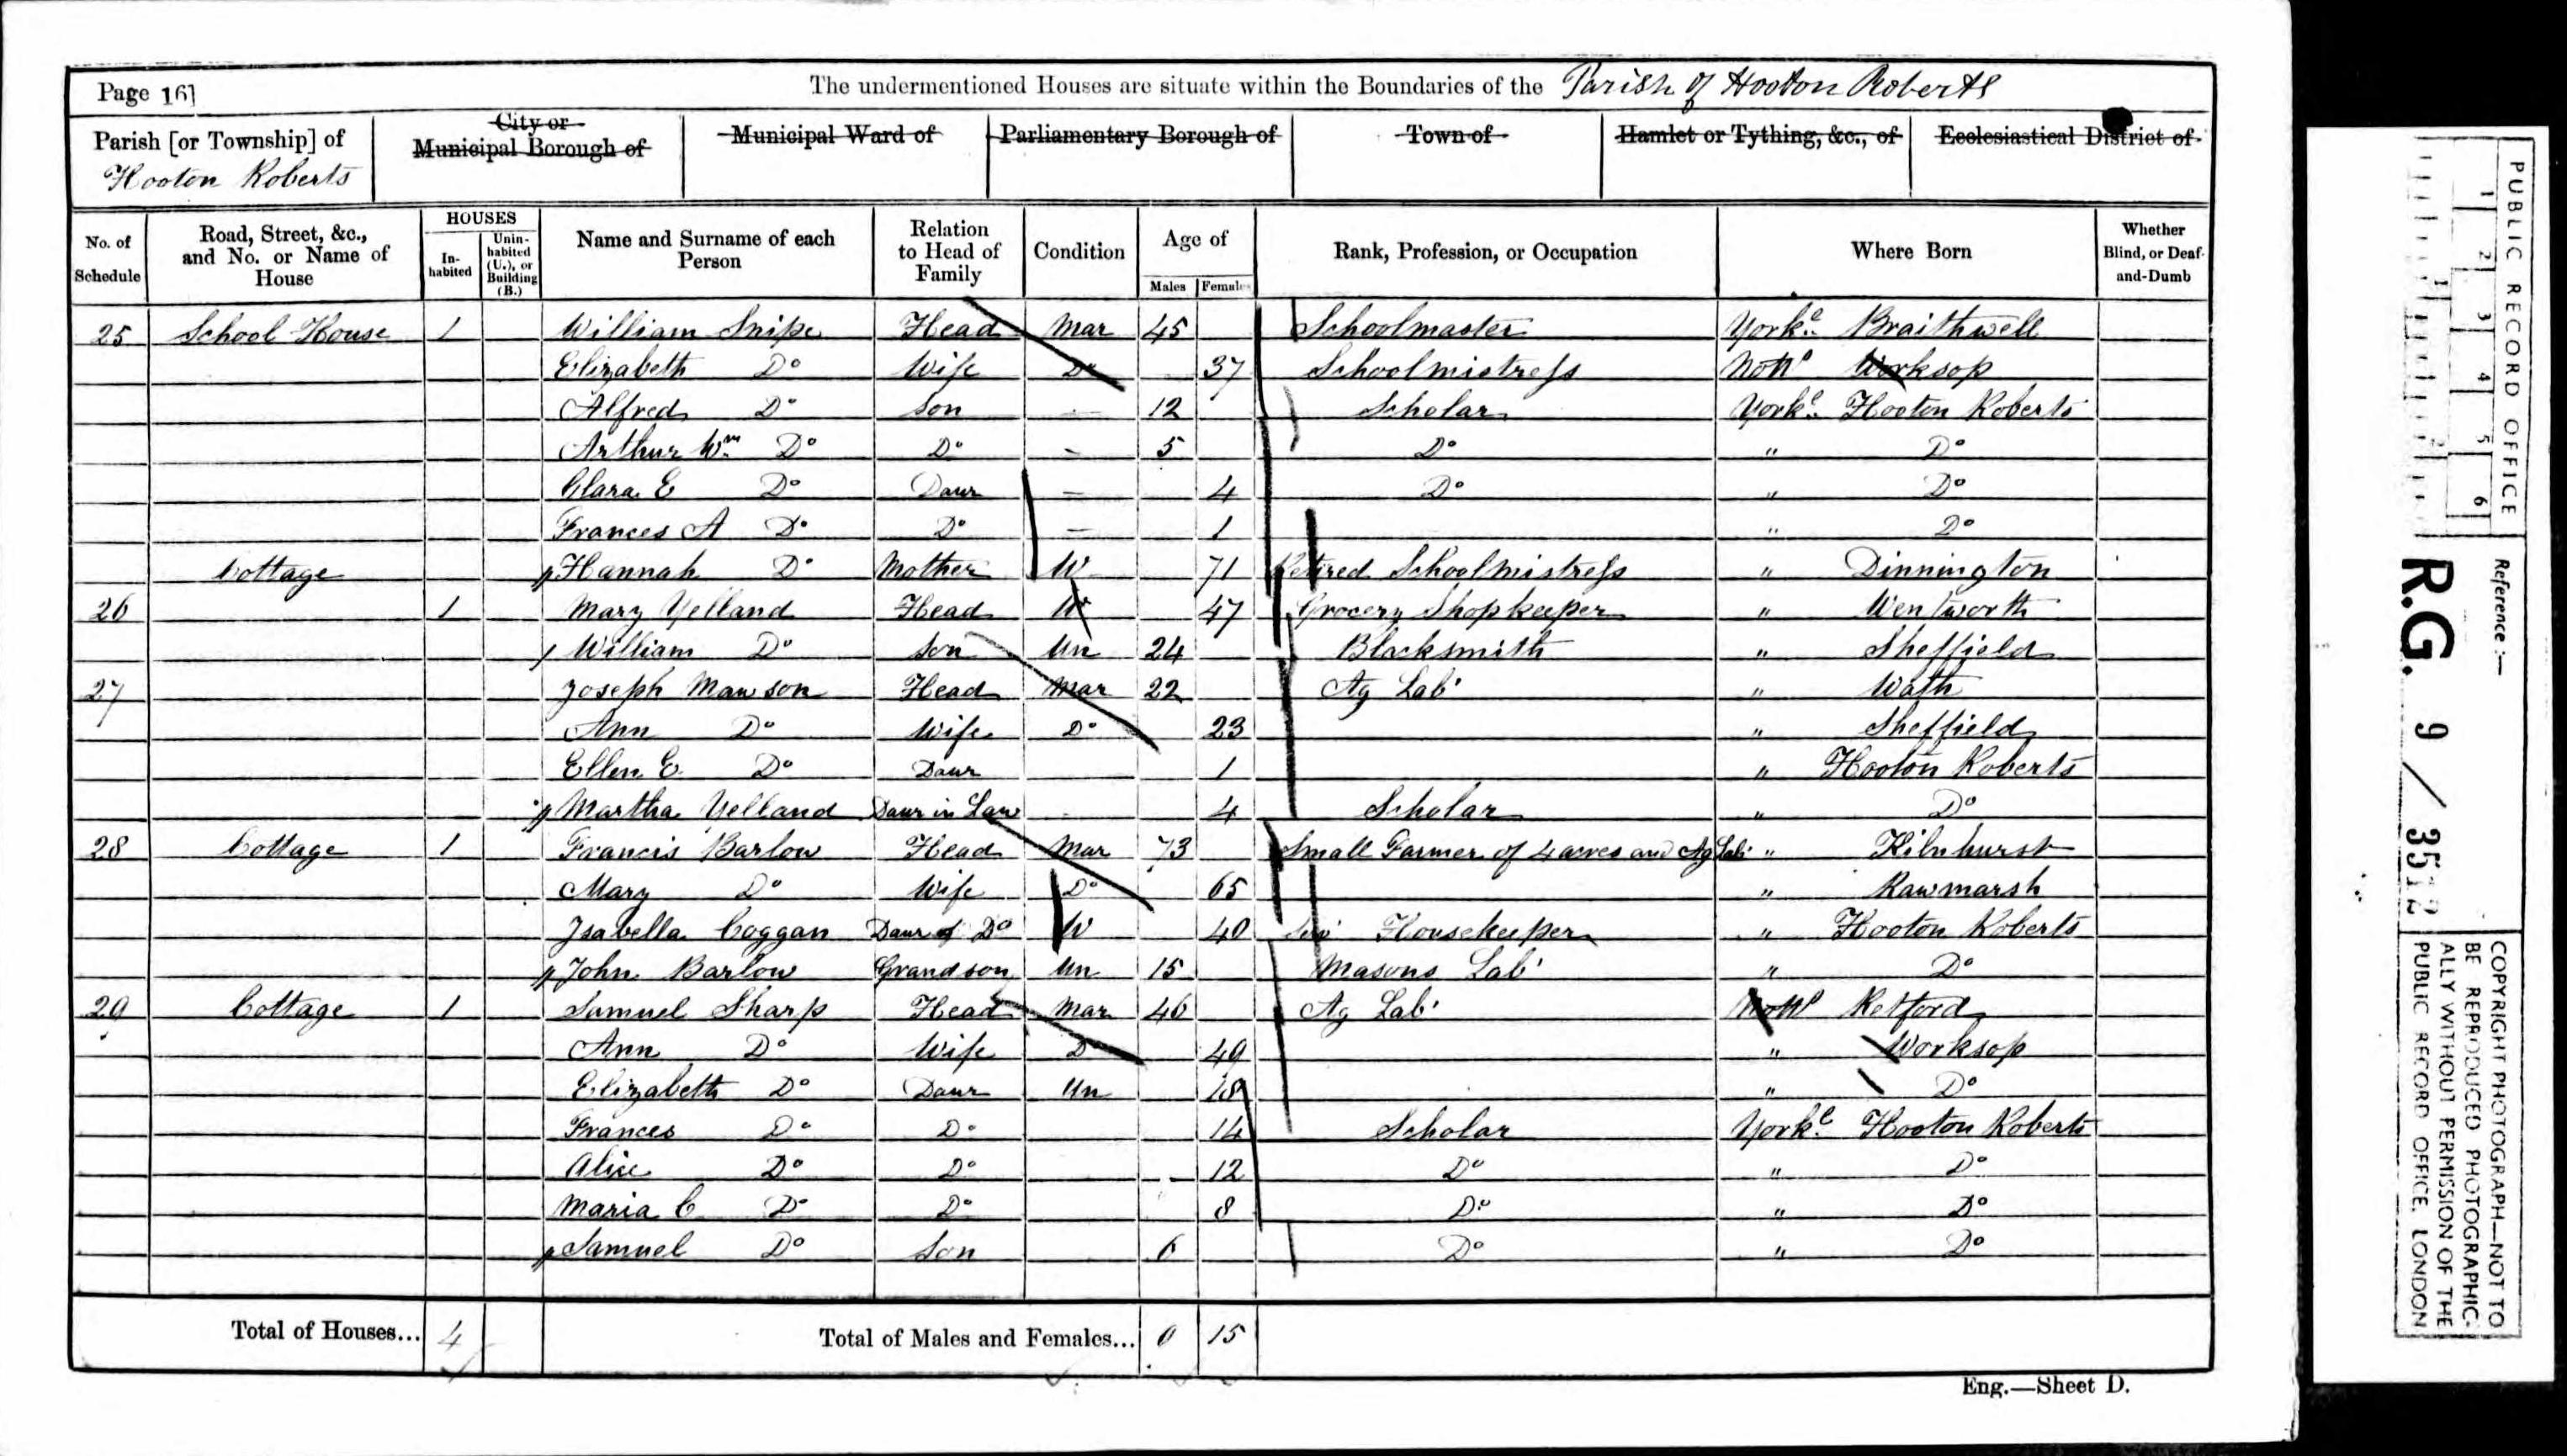 Page 16]
The undermentioned Houses are situate within the Boundaries of the Parish of Hooton Roberts
Parish [or Township] of Hooton Roberts
City or Municipal Borough of
Municipal Ward of
Parliamentary Borough of
Town of
Hamlet or Tything, &c., of
Ecclesiastical District of
No. of Schedule
Road, Street, &c., and No. or Name of House
HOUSES
In-habited
Unin-habited (U.), or Building (B.)
Name and Surname of each Person
Relation to Head of Family
Condition
Age of
Males
Females
Rank, Profession, or Occupation
Where Born
Whether Blind, or Deaf-and-Dumb
25 School House 1 William Snipe Head Mar 45 Schoolmaster Yorke. Braithwell
Elizabeth Do Wife Do 37 Schoolmistress Notts Worksop
Alfred Do Son — 12 Scholar Yorke. Hooton Roberts
Arthur Wm Do Do — 5 Do " Do
Clara E Do Daur — 4 Do " Do
Frances A Do Do — 1 " Do
Cottage Hannah Do Mother W 71 Retired Schoolmistress " Dinnington
26 1 Mary Yelland Head W 47 Grocery Shopkeeper " Wentworth
William Do Son Un 24 Blacksmith " Sheffield
27 Joseph Mawson Head Mar 22 Ag Lab " Wath
Ann Do Wife Do 23 " Sheffield
Ellen E Do Daur 1 " Hooton Roberts
Martha Yelland Daur in Law 4 Scholar " Do
28 Cottage 1 Francis Barlow Head Mar 73 Small Farmer of 4 acres and Ag Lab " Kilnhurst
Mary Do Wife Do 65 " Rawmarsh
Isabella Coggan Daur of Do W 40 Housekeeper " Hooton Roberts
John Barlow Grandson Un 15 Masons Lab " Do
29 Cottage 1 Samuel Sharp Head Mar 46 Ag Lab Notts Retford
Ann Do Wife Do 49 " Worksop
Elizabeth Do Daur Un 18 " Do
Frances Do Do 14 Scholar Yorke. Hooton Roberts
Alice Do Do 12 Do " Do
Maria C Do Do 8 Do " Do
Samuel Do Son 6 Do " Do
Total of Houses... 4
Total of Males and Females... 15
Eng.—Sheet D.
PUBLIC RECORD OFFICE
1 2 3 4 5 6
1 2
Reference:—
R.G. 9 / 3512
COPYRIGHT PHOTOGRAPH—NOT TO
BE REPRODUCED PHOTOGRAPHIC-
ALLY WITHOUT PERMISSION OF THE
PUBLIC RECORD OFFICE, LONDON